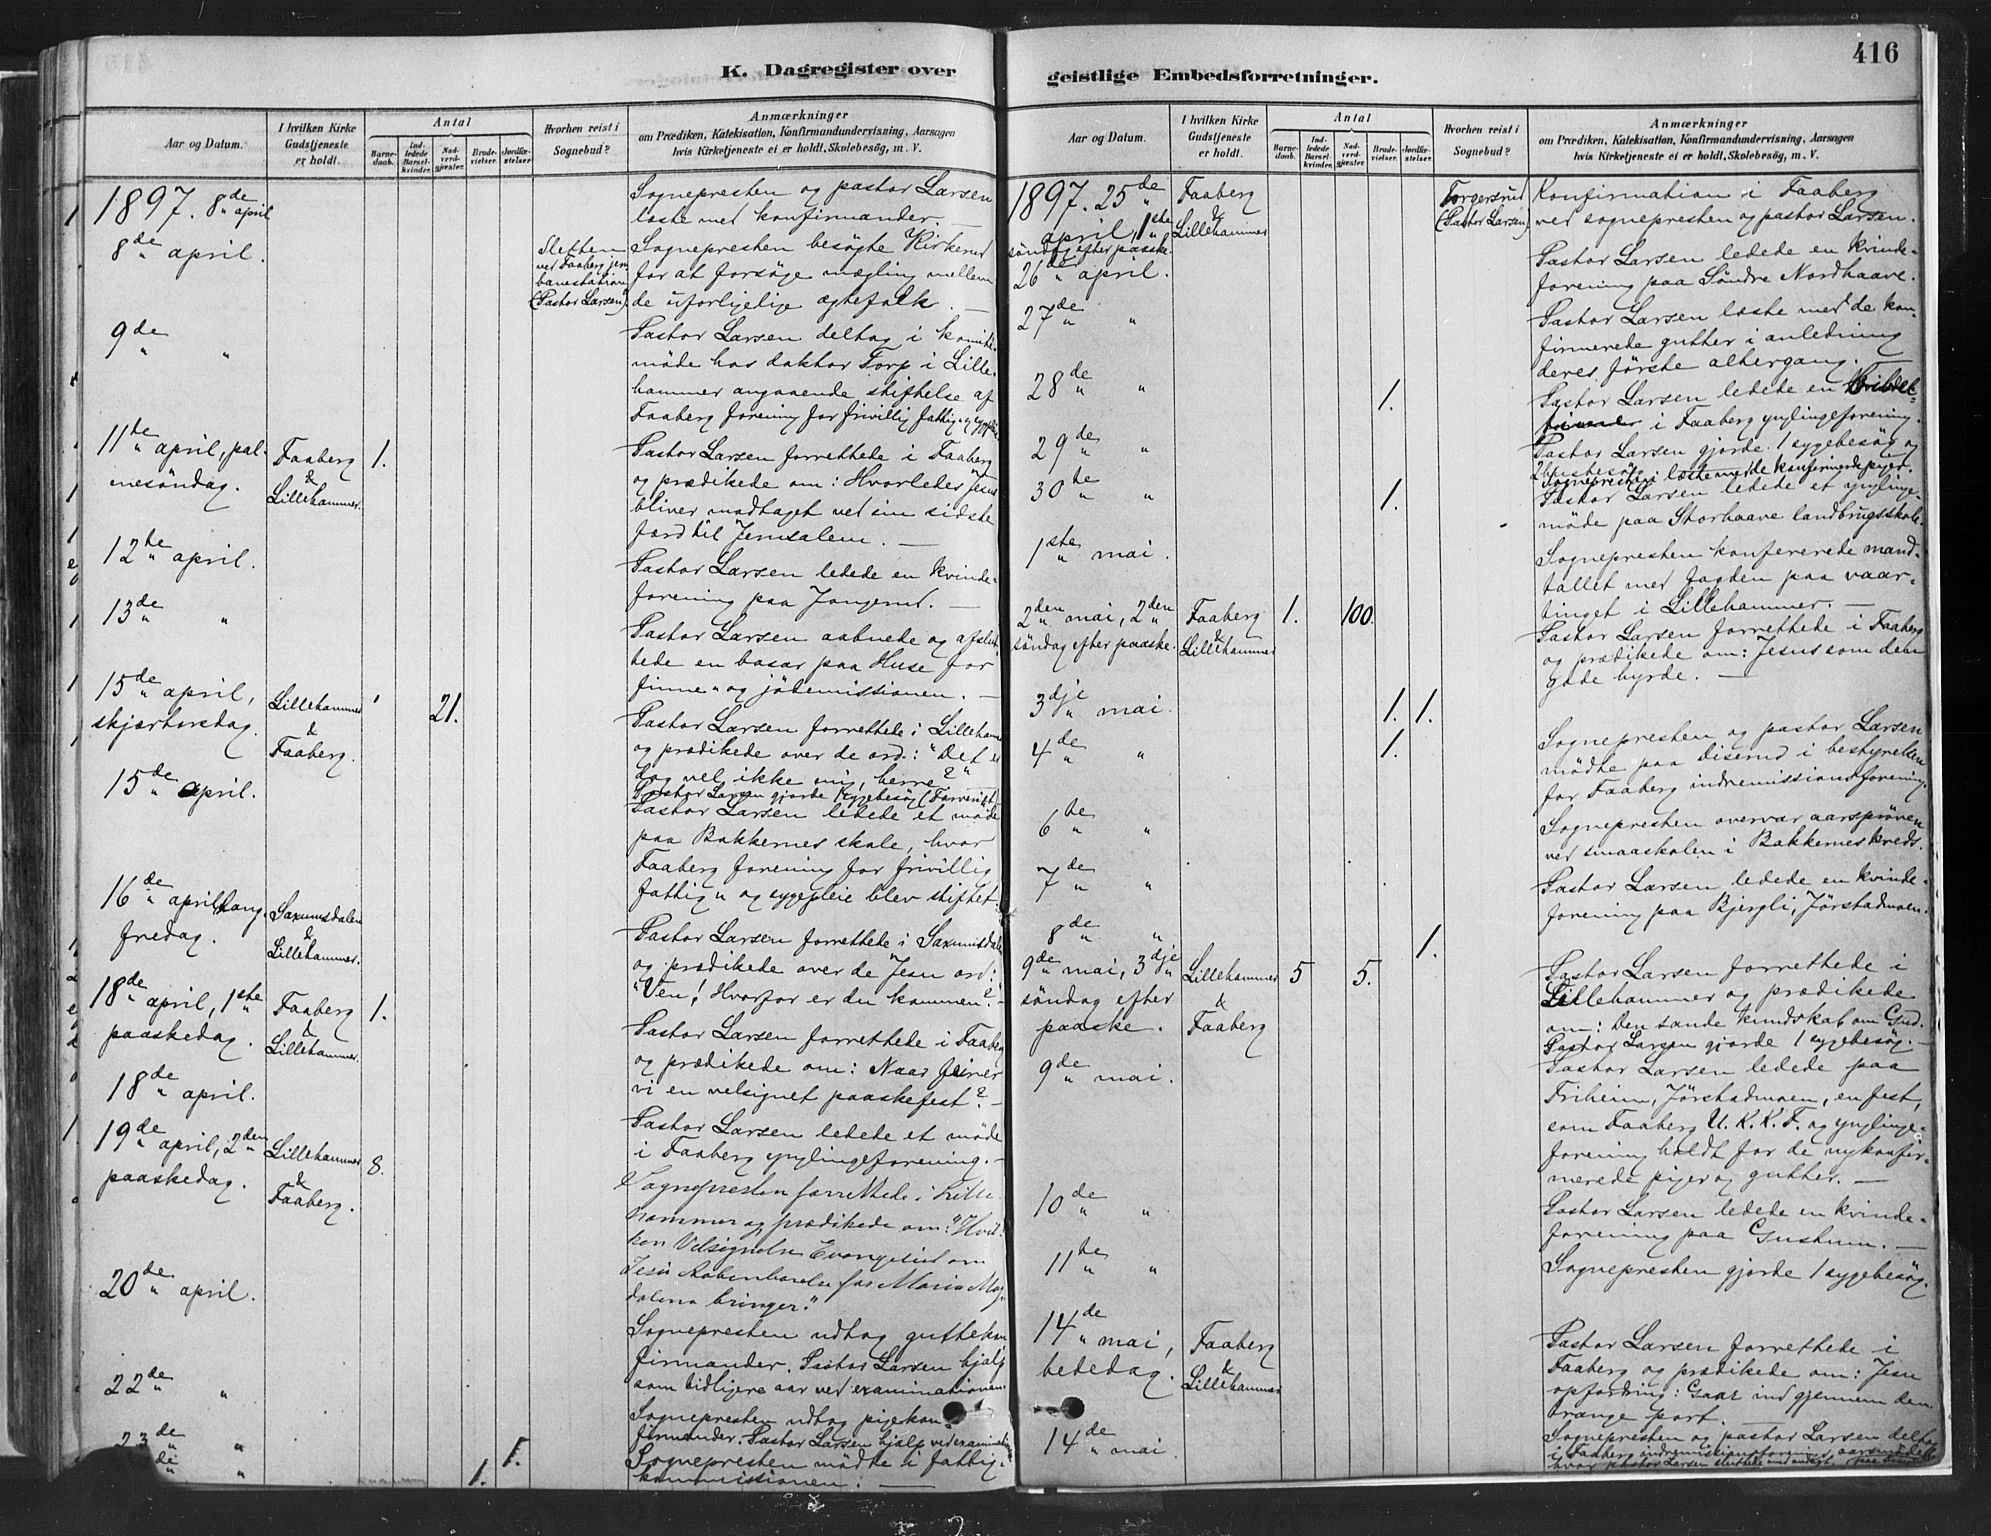 K. Dagregister over
Aar og Datum.
I hvilken Kirke Gudstjeneste er holdt.
Antal
Barnedaab.
Indledede Barselkvinder.
Nadverdgjæster.
Brudevielser.
Jordfæstelser.
Hvorhen reist i Sognebud?
Anmærkninger
om Prædiken, Katekisation, Konfirmandundervisning, Aarsagen
hvis Kirketjeneste ei er holdt, Skolebesøg, m. V.
1897. 8de april
Sognepresten og pastor Larsen
læste med konfirmander.
8de april.
Sletten
ved Faaberg jern
banestation
(Pastor Larsen).
Sognepresten besøgte Kirkerud
for at forsøge mægling mellem
de uforligelige ægtefolk. —
9de " "
Pastor Larsen deltog i komite-
møde hos doktor Torp i Lille-
hammer angaaende stiftelse af
Faaberg forening for frivillig fattig- og
11te april, pal-
mesøndag.
Faaberg
&
Lillehammer.
1.
Pastor Larsen forrettede i Faaberg
og prædikede om: Hvorledes Jesus
bliver modtaget ved sin sidste
færd til Jerusalem. —
12te april.
Pastor Larsen ledede en kvinde-
forening paa Jongerud. —
13de " "
Pastor Larsen aabnede og afslut-
tede en basar paa Huse for
finne- og jødemissionen. —
15de april,
skjærtorsdag.
Lillehammer
&
Faaberg.
21.
Pastor Larsen forrettede i Lilleham
og prædikede over de ord: "Det er
dog vel ikke mig, herre?"
Pastor Larsen gjorde sygebesøg
15de april.
Pastor Larsen ledede et møde
paa Bakkernes skole, hvor
Faaberg forening for frivillig
fattig- og sygepleie blev stiftet.
16de april, lang-
fredag.
Saxumsdalen
&
Lillehammer.
Pastor Larsen forrettede i Saxumsdalen
og prædikede over de Jesu ord:
"Ven! Hvorfor er du kommen?" —
18de april, 1ste
paaskedag.
Faaberg
&
Lillehammer.
1.
Pastor Larsen forrettede i Faaberg
og prædikede om: Naar feirer
vi en velsignet paaskefest? —
18de april.
Pastor Larsen ledede et møde
i Faaberg ynglingeforening. —
19de april, 2den
paaskedag.
Lillehammer
&
Faaberg.
8.
Sognepresten forrettede i Lille-
hammer og prædikede om: "Hvil-
ken Velsignelse Evangeliet om
Jesu Aabenbarelse for Maria Mag-
dalena bringer."
20de april.
Sognepresten udtog guttekon
firmander. Pastor Larsen hjalp
som tidligere aar ved examinationen.
22de " "
Sognepresten udtog pigekon-
firmander. Pastor Larsen hjalp ved examination
23de " "
1.
Sognepresten mødte i fattig-
kommissionen. —
" "
1.
416
geistlige Embedsforretninger.
Aar og Datum.
I hvilken Kirke Gudstjeneste er holdt.
Antal
Barnedaab.
Indledede Barselkvinder.
Nadverdgjæster.
Brudevielser.
Jordfæstelser.
Hvorhen reist i Sognebud?
Anmærkninger
om Prædiken, Katekisation, Konfirmandundervisning, Aarsagen
hvis Kirketjeneste ei er holdt, Skolebesøg, m. V.
1897. 25de
april, 1ste
søndag efter paaske.
Faaberg
&
Lillehammer
Torgersrud
(Pastor Larsen)
Konfirmation i Faaberg
ved sognepresten og pastor Larsen.
26de april.
Pastor Larsen ledede en kvinde-
forening paa Søndre Nordhaave.
27de " "
Pastor Larsen læste med de kon-
firmerede gutter i anledning
deres første altergang. —
28de " "
1.
Pastor Larsen ledede en
i Faaberg ynglingeforening.
29de " "
Pastor Larsen gjorde 1 sygebesøg og
2 husbesøg.
Sognepresten læste med de konfirmerede piger.
30te " "
1.
Pastor Larsen ledede et ynglinge-
møde paa Storhaave landbrugsskole.
1ste mai.
Sognepresten konfererede mand-
tallet med fogden paa vaar-
tinget i Lillehammer. —
2den mai, 2den
søndag efter paaske.
Faaberg
&
Lillehammer
1.
100.
Pastor Larsen forrettede i Faaberg
og prædikede om: Jesus som den
gode hyrde. —
3dje " mai.
1.
1.
4de " "
1.
Sognepresten og pastor Larsen
mødte paa Diserud i bestyrelsen
for Faaberg indremissionsforening.
6te " "
Sognepresten overvar aarsprøven
ved smaaskolen i Bakkernes kreds.
7de " "
Pastor Larsen ledede en kvinde-
forening paa Bjergli, Jørstadmoen.
8de " "
1.
9de mai, 3dje
søndag efter
paaske.
Lillehammer
&
Faaberg
5
5.
Pastor Larsen forrettede i
Lillehammer og prædikede
om: Den sande kundskab om Gud.
Pastor Larsen gjorde 1 sygebesøg. —
9de " mai.
Pastor Larsen ledede paa
Friheim, Jørstadmoen, en fest,
som Faaberg U. K. K. F. og ynglinge-
forening holdt for de nykonfir-
merede piger og gutter. —
10de " "
Pastor Larsen ledede en kvinde-
forening paa Gustum. —
11te " "
Sognepresten gjorde 1 sygebesøg.
14de " mai,
bededag.
Faaberg
&
Lillehammer
Pastor Larsen forrettede i
Faaberg og prædikede om: Jesu
opfordring: Gaar ind gjennem den
trange port. —
14de " mai
Sognepresten og pastor Larsen deltog
i Faaberg indremissionsforenings aarsmøde
hvor pastor Larsen sluttede med andagt.